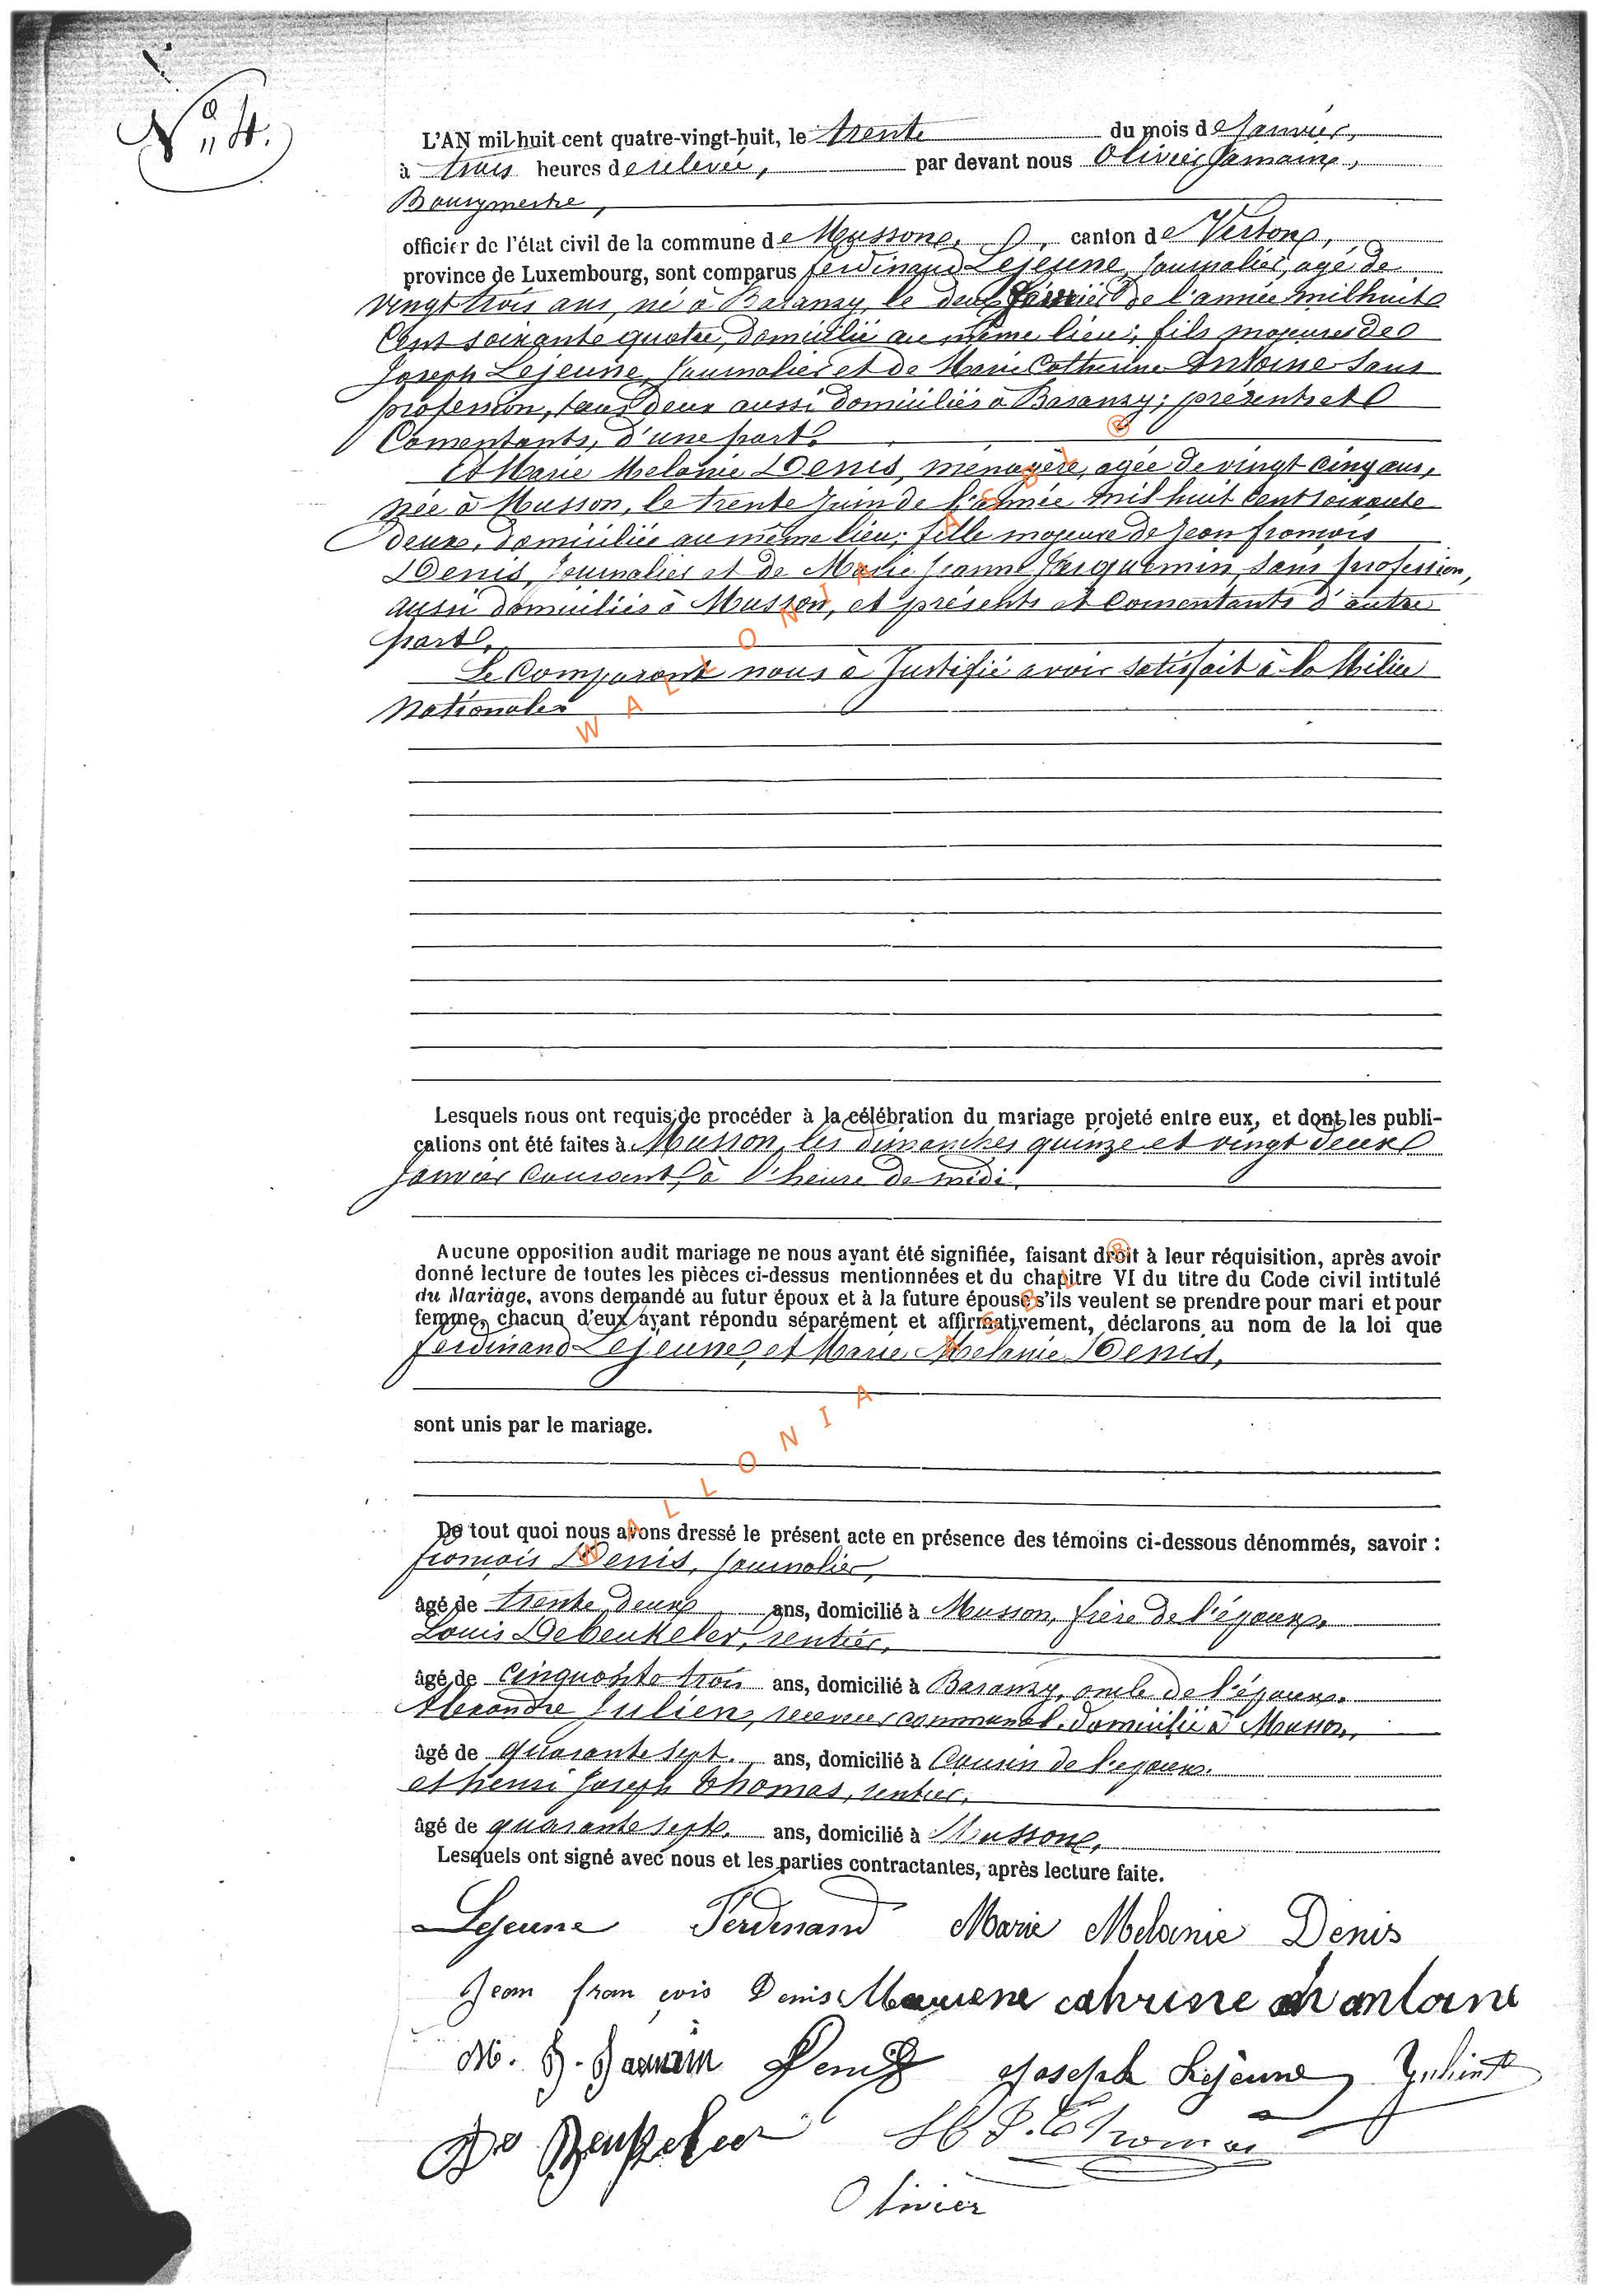 N° 4.
L'AN mil-huit cent quatre-vingt-huit, le trente du mois de Janvier,
à trois heures de relevée, par devant nous Olivier Jamain,
Bourgmestre,
officier de l'état civil de la commune de Musson, canton de Virton,
province de Luxembourg, sont comparus ferdinand Lejeune, Journalier, agé de
vingt trois ans, né à Baranzy, le deux février de l'année milhuit
Cent soixante quatre, domicilié au même lieu; fils majeur de
Joseph Lejeune, Journalier et de Marie Catherine Antoine sans
profession, tous deux aussi domiciliés à Baranzy; présents et
Consentants, d'une part.
Et Marie Melanie Denis, ménagère, agée de vingt cinq ans,
née à Musson, le trente Juin de l'année mil huit Cent soixante
deux, domiciliée au même lieu; fille majeure de Jean françois
Denis, Journalier et de Marie Jeanne Jacquemin, sans profession,
aussi domiciliés à Musson, et présents et Consentants d'autre
part.
Le Comparant nous à Justifié avoir satisfait à la Milice
Nationale.
WALLONIA ASBL ®
Lesquels nous ont requis de procéder à la célébration du mariage projeté entre eux, et dont les publi-
cations ont été faites à Musson, les dimanches quinze et vingt deux
Janvier Courant, à l'heure de midi.
Aucune opposition audit mariage ne nous ayant été signifiée, faisant droit à leur réquisition, après avoir
donné lecture de toutes les pièces ci-dessus mentionnées et du chapitre VI du titre du Code civil intitulé
du Mariage, avons demandé au futur époux et à la future épouse s'ils veulent se prendre pour mari et pour
femme, chacun d'eux ayant répondu séparément et affirmativement, déclarons au nom de la loi que
ferdinand Lejeune, et Marie Melanie Denis,
sont unis par le mariage.
WALLONIA ASBL ®
De tout quoi nous avons dressé le présent acte en présence des témoins ci-dessous dénommés, savoir :
françois Denis, Journalier,
âgé de trente deux ans, domicilié à Musson, frère de l'épouse.
Louis Debeukeler, rentier,
âgé de Cinquante trois ans, domicilié à Baranzy, oncle de l'épouse.
Alexandre Julien, receveur communal, domicilié à Musson,
âgé de quarante sept. ans, domicilié à Cousin de l'epoux.
et henri Joseph Thomas, rentier,
âgé de quarante sept. ans, domicilié à Musson,
Lesquels ont signé avec nous et les parties contractantes, après lecture faite.
Lejeune Ferdinand Marie Melanie Denis
Jean fran çois Denis antoine
M. J. Denis Joseph Lejeune Julien
De Beukeleer H J. Thomas
Olivier